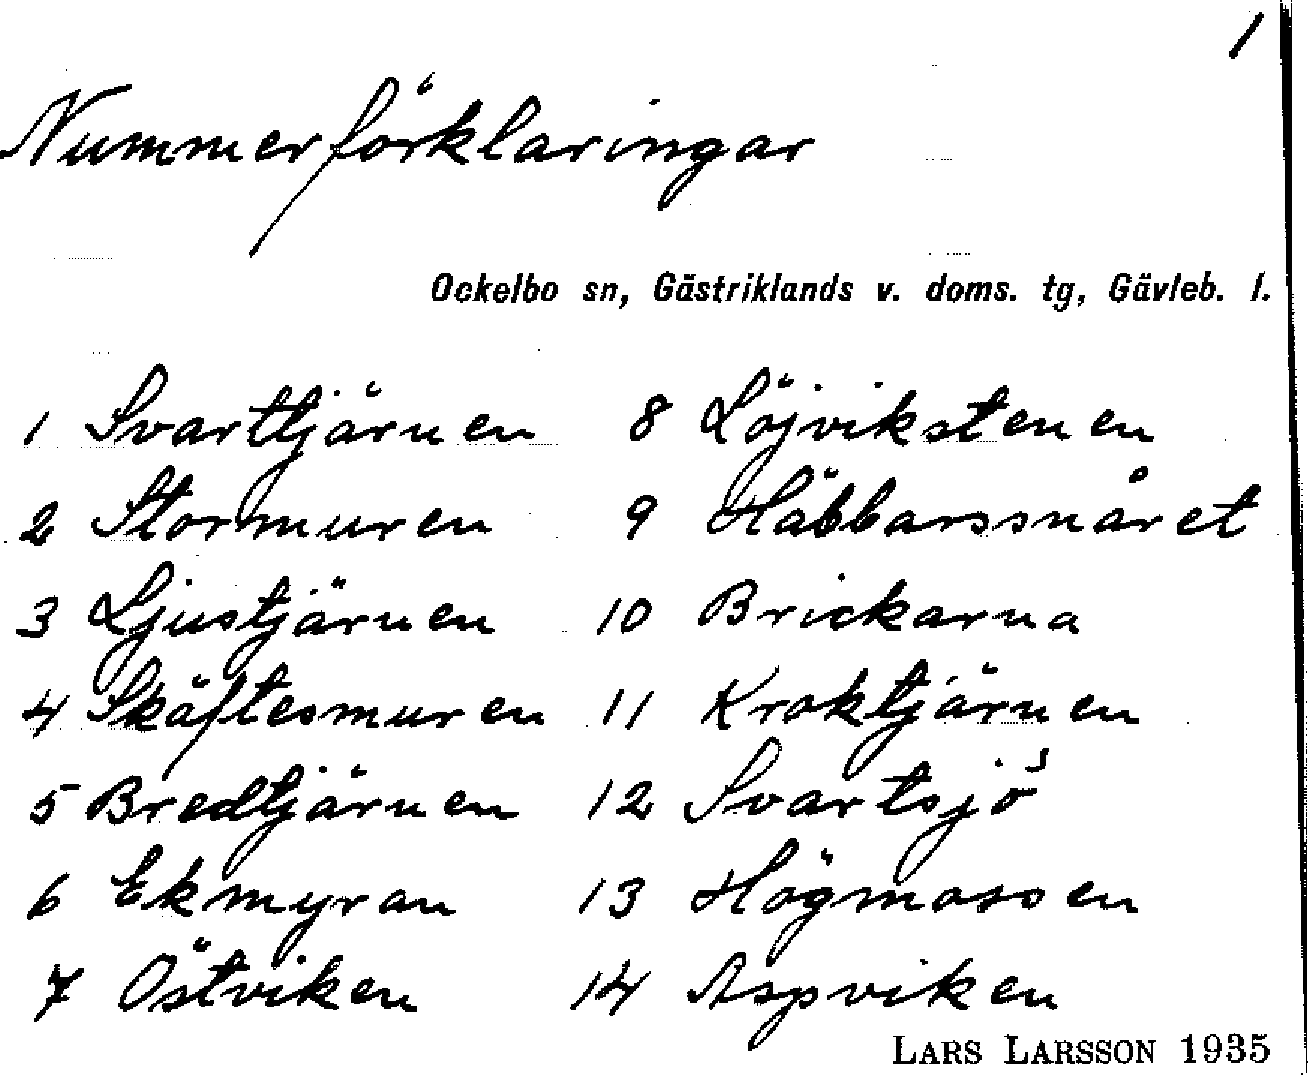 1
Nummerförklaringar
Ockelbo sn, Gästriklands v. doms. tg, Gävleb. l.
1 Svarttjärnen 8 Löjvikstenen
2 Stormuren 9 Häbbarssnåret
3 Ljustjärnen 10 Brickarna
4 Skäftesmuren 11 Kroktjärnen
5 Bredtjärnen 12 Svartsjö
6 Ekmyran 13 Högmossen
7 Östviken 14 Aspviken
LARS LARSSON 1935